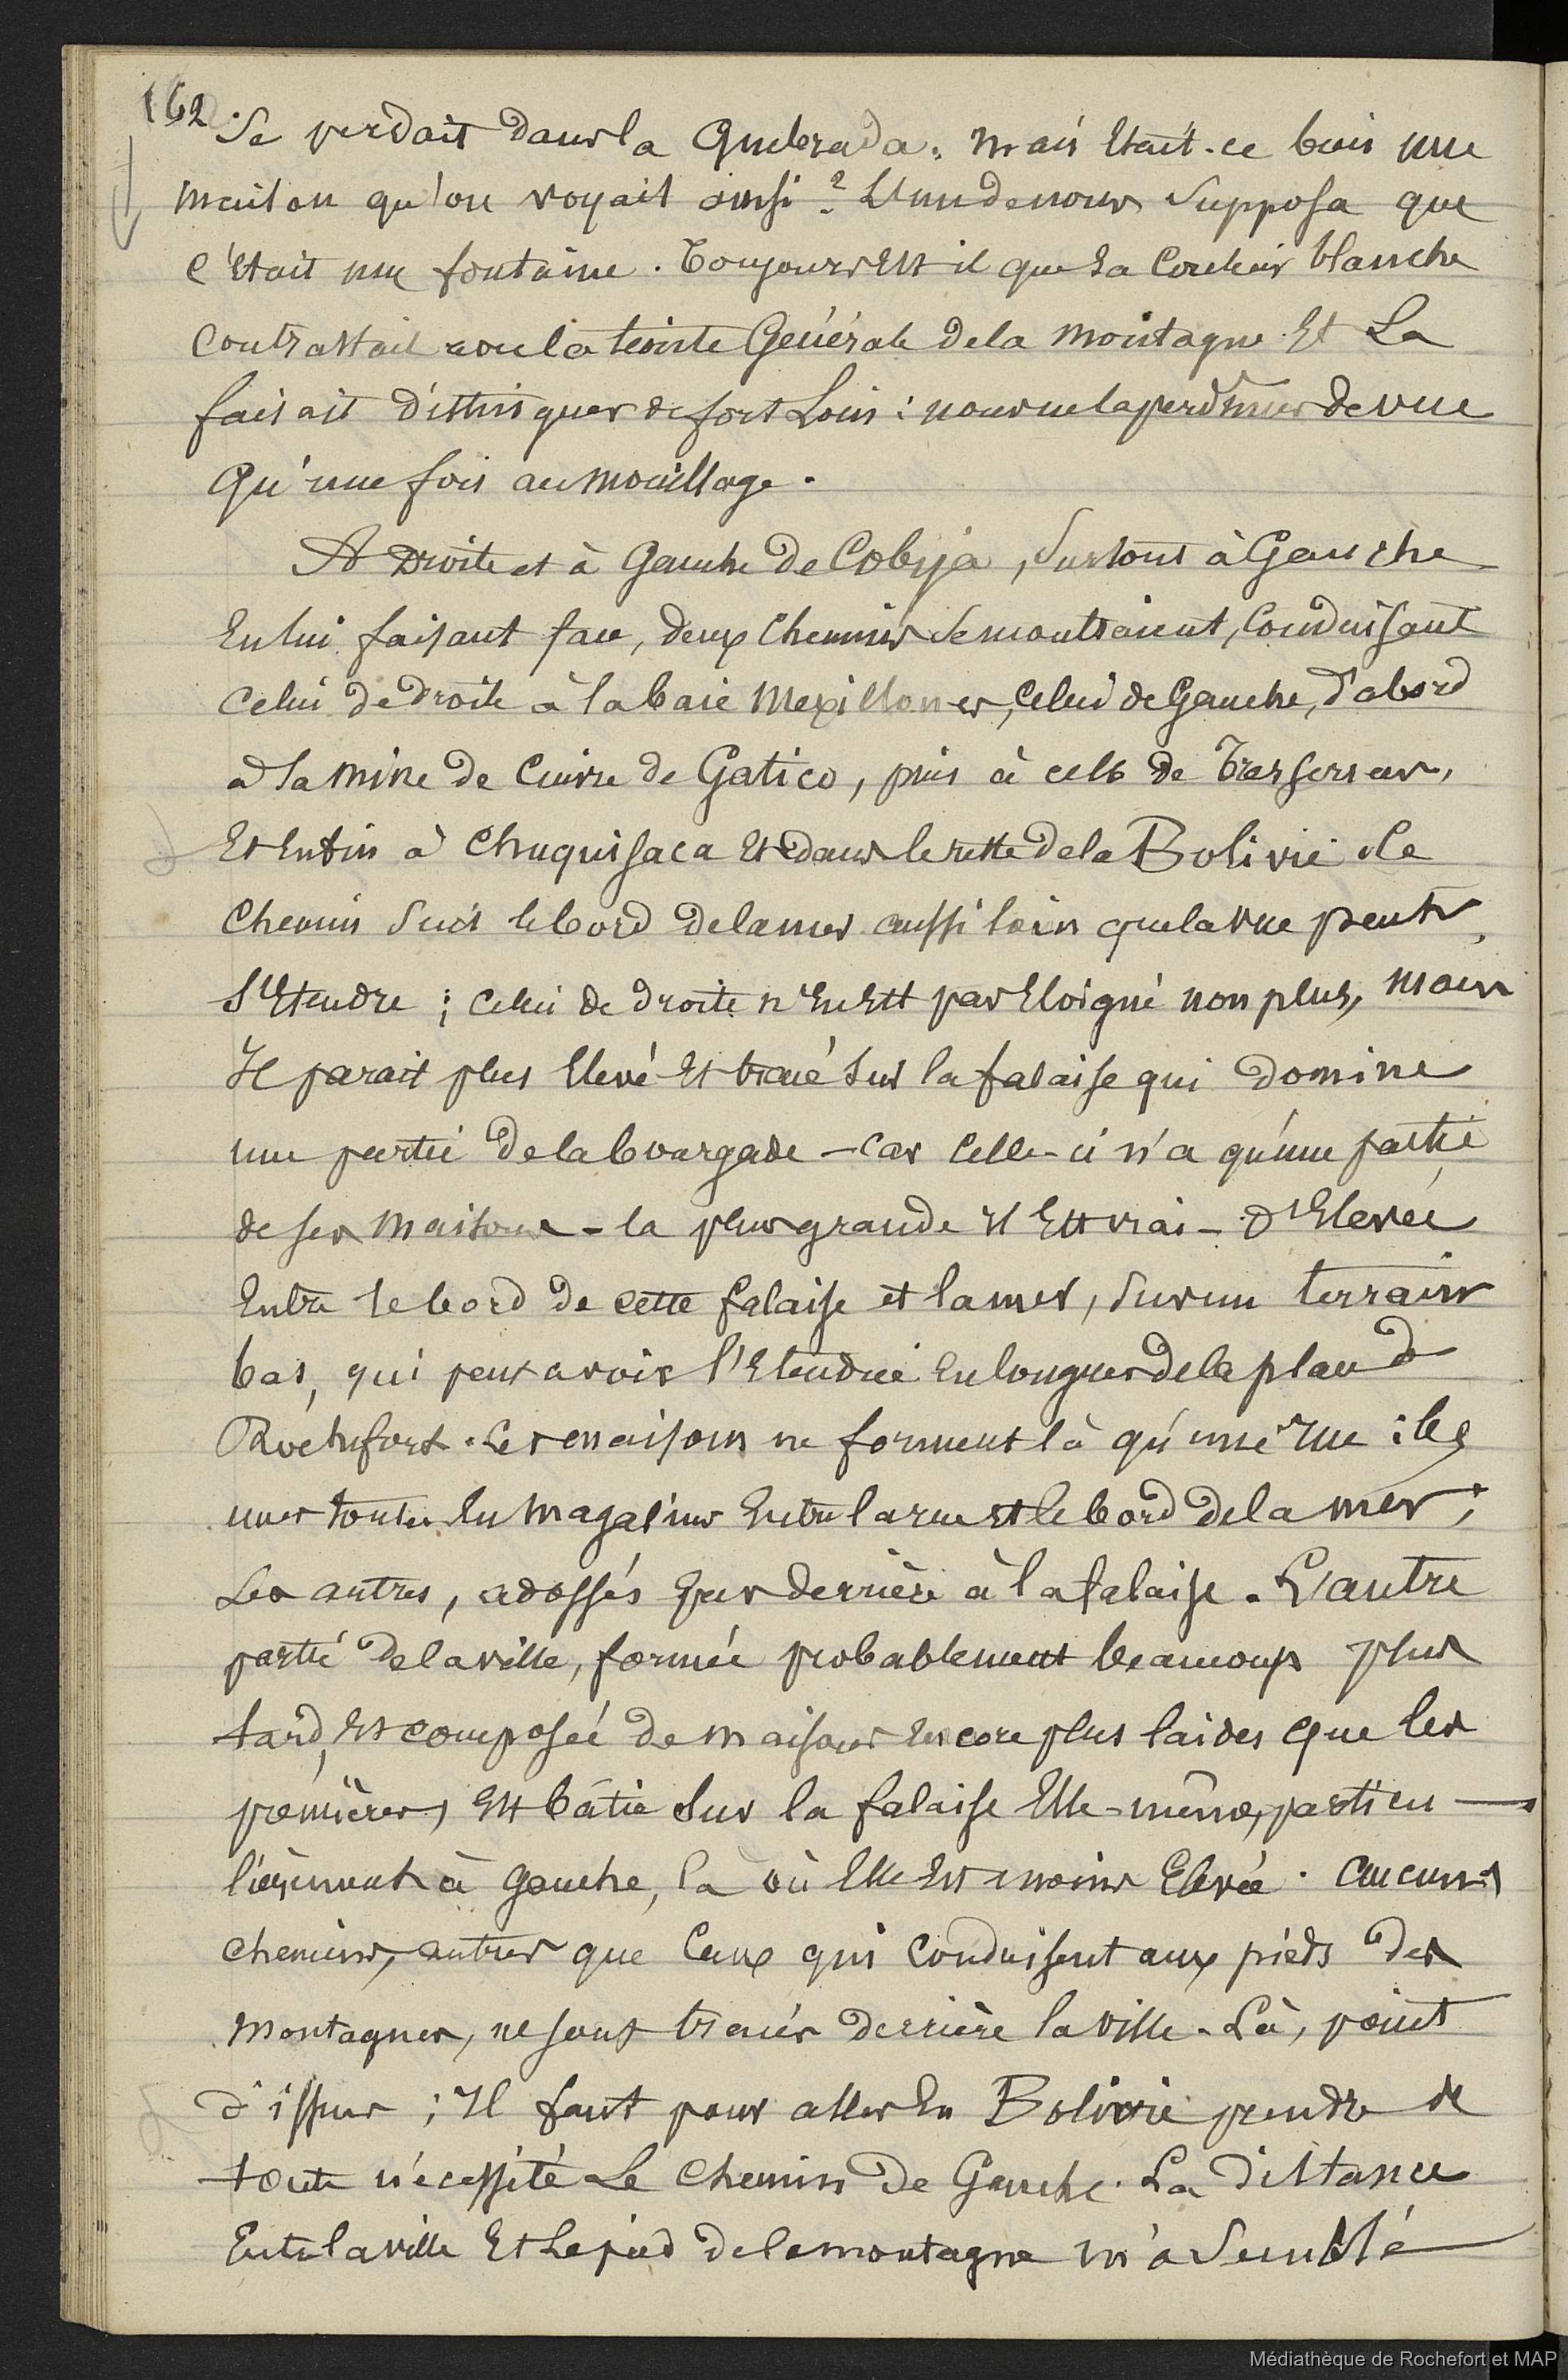 162
se perdait dans la Quebrada. Mais était-ce bien une
maison qu'on voyait ainsi ? L'un de nous supposa que
c'était une fontaine. Toujours est il que sa couleur blanche
contrastait avec la teinte Générale de la montagne Et La
faisait distinguer de fort Loin : nous ne la perdîmes de vue
qu'une fois au mouillage.
A Droite et à Gauche De Cobija, surtout à Gauche
En lui faisant face, deux Chemins se montraient, Conduisant
Celui de droite à la baie Mexillones, Celui de Gauche, d'abord
à la mine de Cuivre de Gatico, puis à celle de
Et Enfin à Chuquisaca Et dans le reste de la Bolivie. Ce
Chemin suit le bord de la mer aussi loin que la vue peut
s'Etendre ; celui de droite n'En Est pas Eloigné non plus, mais
Il parait plus Elevé Et tracé sur la falaise qui domine
une partie de la bourgade - car Celle-ci n'a qu'une partie
de ses maisons - la plus grande il Est vrai - d'Elevée
Entre le bord de cette falaise et la mer, sur un terrain
bas, qui peut avoir l'Etendue En longueur de la place d
Rochefort. Les maisons ne forment là qu'une rue : les
unes toutes En magasins Entre la rue Et le bord de la mer ;
Les autres, adossés par derrière à la falaise. L'autre
partie de la ville, formée probablement beaucoup plus
tard, Et composée de maisons Encore plus laides que les
premières, Est bâtie sur la falaise Elle-même, particu-
lièrement à gauche, là où Elle Est moins Elevée. Aucuns
chemins, autres que Ceux qui Conduisent aux pieds des
montagnes, ne sont tracés derrière la ville. Là, point
d'issues ; Il faut pour aller En Bolivie prendre de
toute nécessité Le Chemin de Gauche. La distance
Entre la ville Et Le pied de la montagne m'a semblé
Médiathèque de Rochefort et MAP